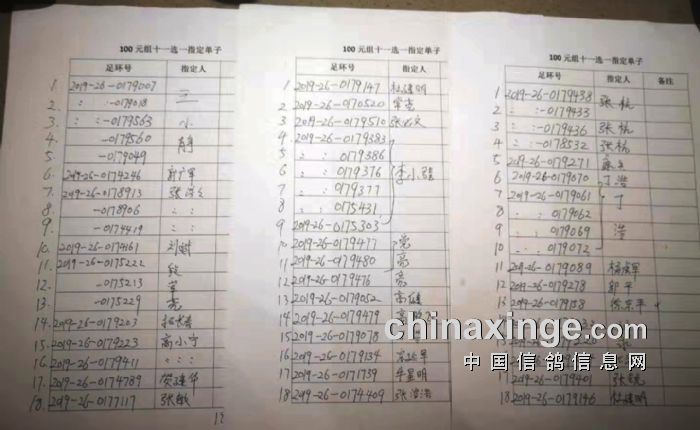 100元组十一选一指定单子
足环号 指定人
1. 2019-26-0179007 三
2. : :-0179018
3. : :-0179563 小
4. -0179560 静
5. -0179049
6. 2019-26-0174246
7. 2019-26-0178913 张
8. -0178906 : :
9. -0174419 : :
10. 2019-26-0174461 刘
11. 2019-26-0175222
12. -0175213 军
13. -0175229 亮
14. 2019-26-0179203
15. 2019-26-0179223 高小宁
16. 2019-26-0179411 : : :
17. 2019-26-0174789 贺建华
18. 2019-26-0177117 张敏
100元组十一选一指定单子
足环号 指定人
1 2019-26-0179147 杜建明
2 2019-26-0170520
3 2019-26-0179510 张文
4 2019-26-0179383
5 : : 0179386
6 : : 0179376 李小强
7 0179377
8 : : 0175431
9 2019-26-0175303
10 2019-26-0179477
11 2019-26-0179480 亮
12 2019-26-0179476 亮
13 2019-26-0179052 高健
14 2019-26-0179479 高
15 2019-26-0179078
16 2019-26-0179134 军
17 2019-26-0171739 牛星明
18 2019-26-0174409 张浩浩
100元组十一选一指定单子
足环号 指定人 备注
1 2019-26-0179438 张杭
2 : : -0179433
3 : :-0179436 张杭
4 : :-0178532 张杨
5 2019-26-0179271
6 2019-26-0179070 丁浩
7 2019-26-0179061 丁
8 : : 0179062
9 : : 0179069 浩
10 : : 0179072
11 2019-26-0179089 杨成军
12 2019-26-0179278 郭平
13 2019-26-0179158 徐东平
张
17 2019-26-0179401 张
18 2019-26-0179146 杜建明
chinaxinge.com
中国信鸽信息网